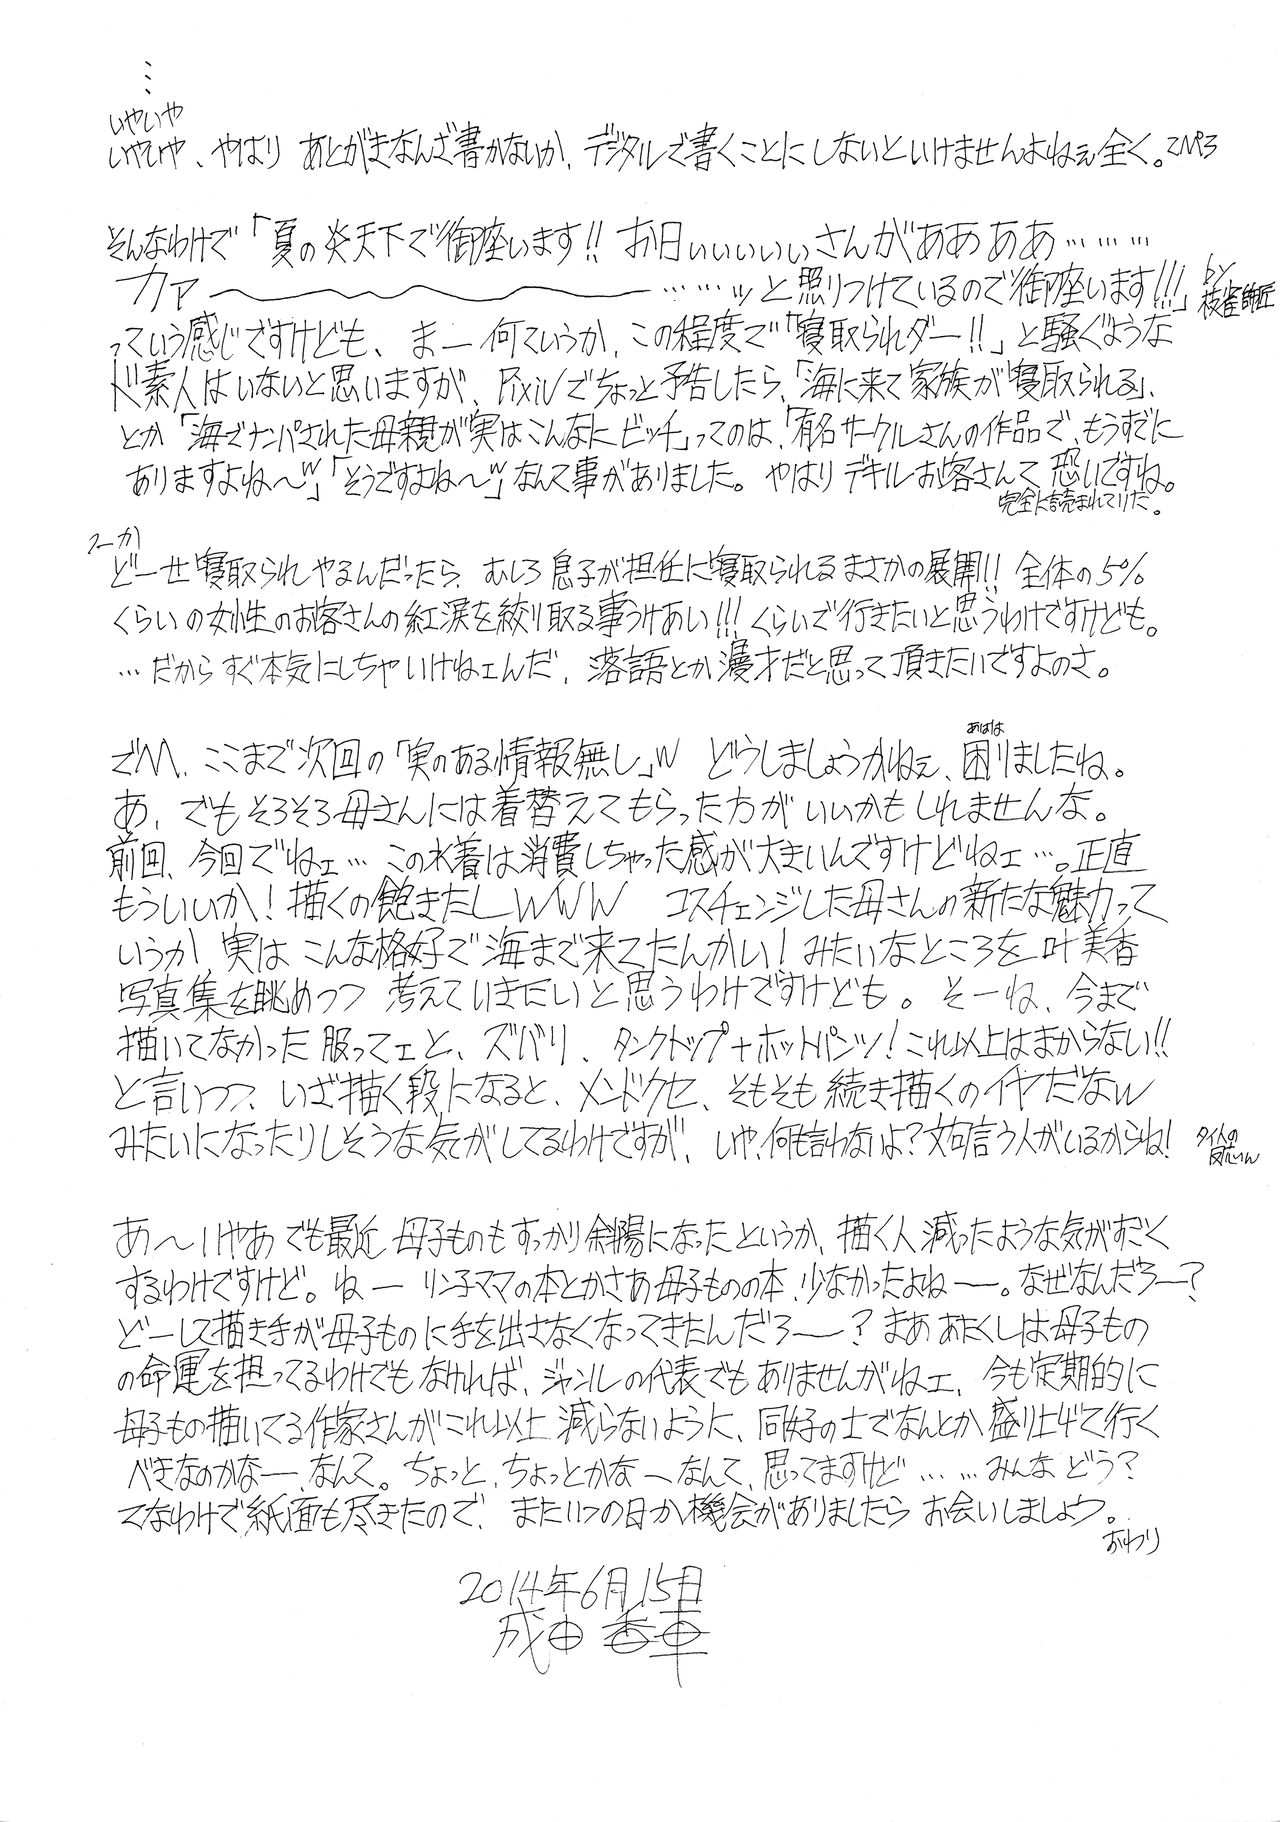 …
いやいや
いやいや、やはり あとがきなんざ書かないか、デジタルで書くことにしないといけませんよねぇ全く。
そんなわけで「夏の炎天下で御座います!! お日ぃぃぃぃぃさんがあああああ………
カァ――――……ッと照りつけているので御座います!!!」by枝雀師匠
っていう感じですけども、まー何ていうか、この程度で「寝取られダー!!」と騒ぐような
ド素人はいないと思いますが、Pixivでちょっと予告したら、「海に来て家族が寝取られる」、
とか「海でナンパされた母親が実はこんなにビッチ」ってのは、「有名サークルさんの作品で、もうすでに
ありますよね〜w」「そうですよね〜w」なんて事がありました。やはりデキルお客さんて恐いですね。
完全に読まれてりだ。
つーか
どーせ寝取られやるんだったら、むしろ息子が担任に寝取られるまさかの展開!! 全体の5%
くらいの女性のお客さんの紅涙を絞り取る事うけあい!!! くらいで行きたいと思うわけですけども。
…だからすぐ本気にしちゃいけねェんだ、落語とか漫才だと思って頂きたいですよのさ。
でM、ここまで次回の「実のある情報無し」w どうしましょうかねぇ、困りましたね。
あはは
あ、でもそろそろ母さんには着替えてもらった方がいいかもしれませんな。
前回、今回でねェ… この水着は消費しちゃった感が大きいんですけどねェ…。正直
もういいか! 描くの飽きたしwww コスチェンジした母さんの新たな魅力って
いうか、実はこんな格好で海まで来てたんかい! みたいなところを叶美香
写真集を眺めつつ 考えていきたいと思うわけですけども。そーね、今まで
描いてなかった服ってェと、ズバリ、タンクトップ+ホットパンツ! これ以上はまからない!!
と言いつつ、いざ描く段になると、メンドクセ、そもそも続き描くのイヤだなw
みたいになったりしそうな気がしてるわけですが、いや、何も言わないよ? 文句言う人がいるからね!
あ〜いやあ でも最近 母子ものもすっかり斜陽になったというか、描く人減ったような気がすごく
するわけですけど。ねー リン子ママの本とかさあ母子ものの本、少なかったよねー。なぜなんだろー?
どーして描き手が母子ものに手を出さなくなってきたんだろー? まああたくしは母子もの
の命運を担ってるわけでもなければ、ジャンルの代表でもありませんがねェ、今も定期的に
母子もの描いてる作家さんがこれ以上減らないように、同好の士でなんとか盛り上げて行く
べきなのかなー、なんて。ちょっと、ちょっとかなーなんて、思ってますけど……みんなどう?
てなわけで紙面も尽きたので、またいつの日か機会がありましたらお会いしましょう。
おわり
2014年6月15日
成田香車